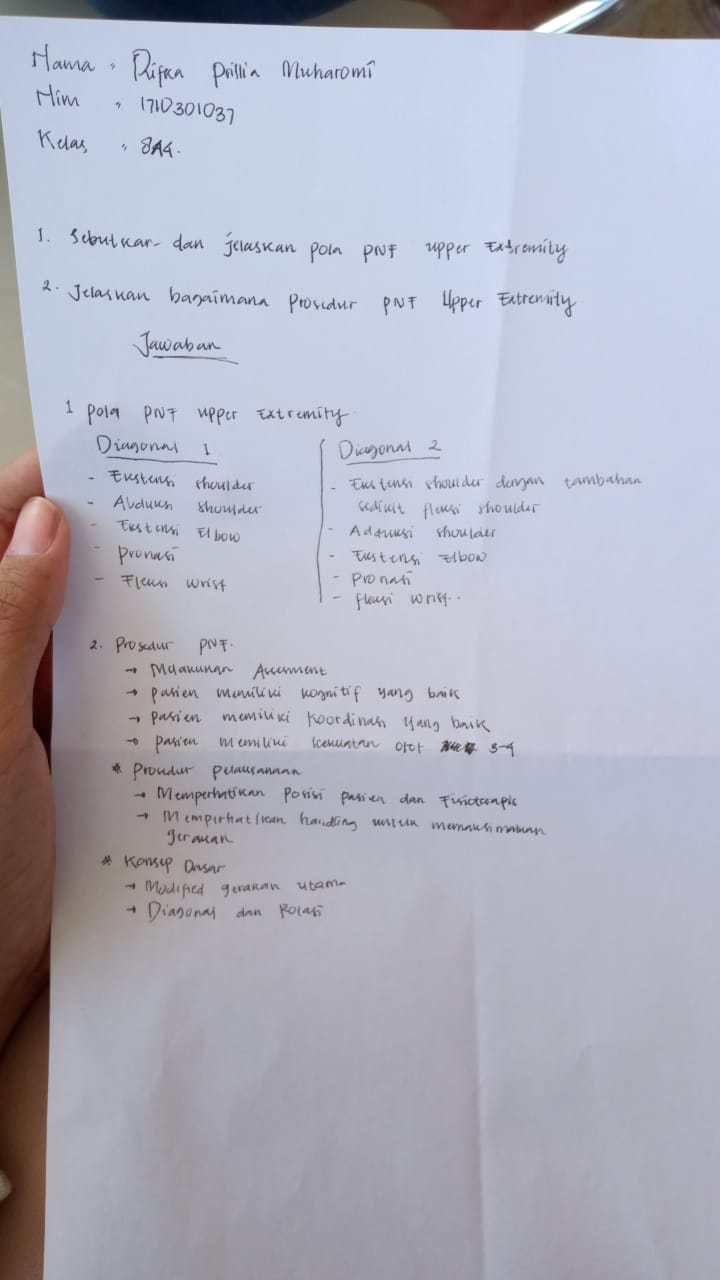 Nama : Rifka Prillia Muharomi
Nim : 1710301037
Kelas : 8A4.
1. Sebutkan dan jelaskan pola PNF upper Extremity
2. Jelaskan bagaimana Prosedur PNF Upper Extremity
Jawaban
1 Pola PNF upper Extremity
Diagonal 1
- Ekstensi shoulder
- Abduksi shoulder
- Ekstensi Elbow
- Pronasi
- Fleksi wrist
Diagonal 2
- Ekstensi shoulder dengan tambahan
sedikit fleksi shoulder
- Adduksi shoulder
- Ekstensi Elbow
- Pronasi
- fleksi wrist.
2. Prosedur PNF.
→ Melakukan Assesment
→ Pasien memiliki kognitif yang baik
→ Pasien memiliki koordinasi yang baik
→ Pasien memiliki kekuatan otot 3-4
* Prosedur pelaksanaan
→ Memperhatikan Posisi pasien dan Fisioterapis
→ Memperhatikan handling untuk memaksimalkan
gerakan
* Konsep Dasar
→ Modified gerakan utama
→ Diagonal dan Rotasi